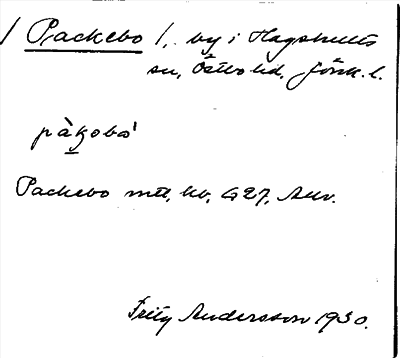 / Packebo /, by i Hagshults
sn, Östbo hd, Jönk. l.
pàkobo'
Packebo mtl, kb, G27, Anv.
Fritz Andersson 1930.